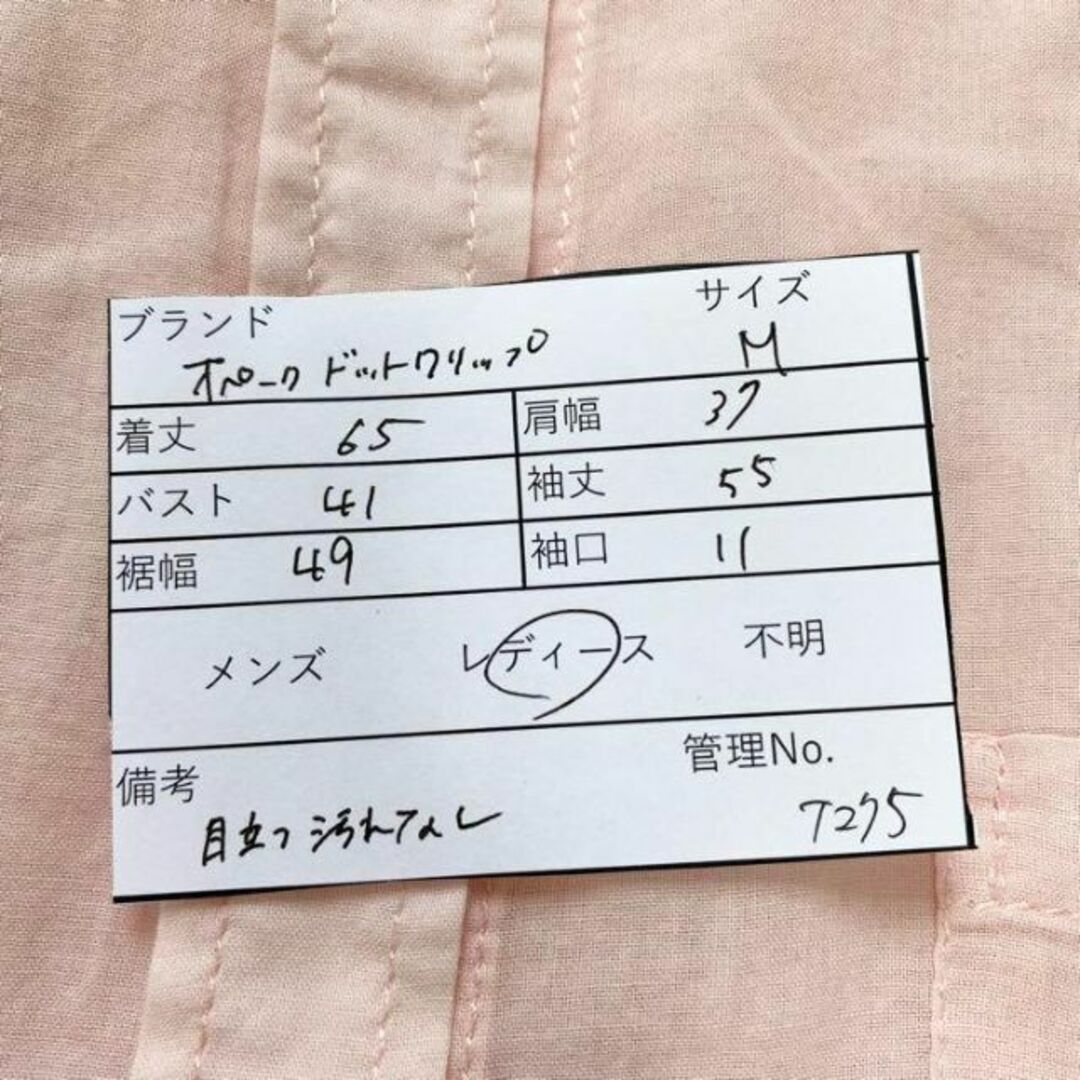 ブランド サイズ
オペーク ドットクリップ M
着丈 65 肩幅 37
バスト 41 袖丈 55
裾幅 49 袖口 11
メンズ レディース 不明
備考 管理No.
目立つ汚れなし 7275